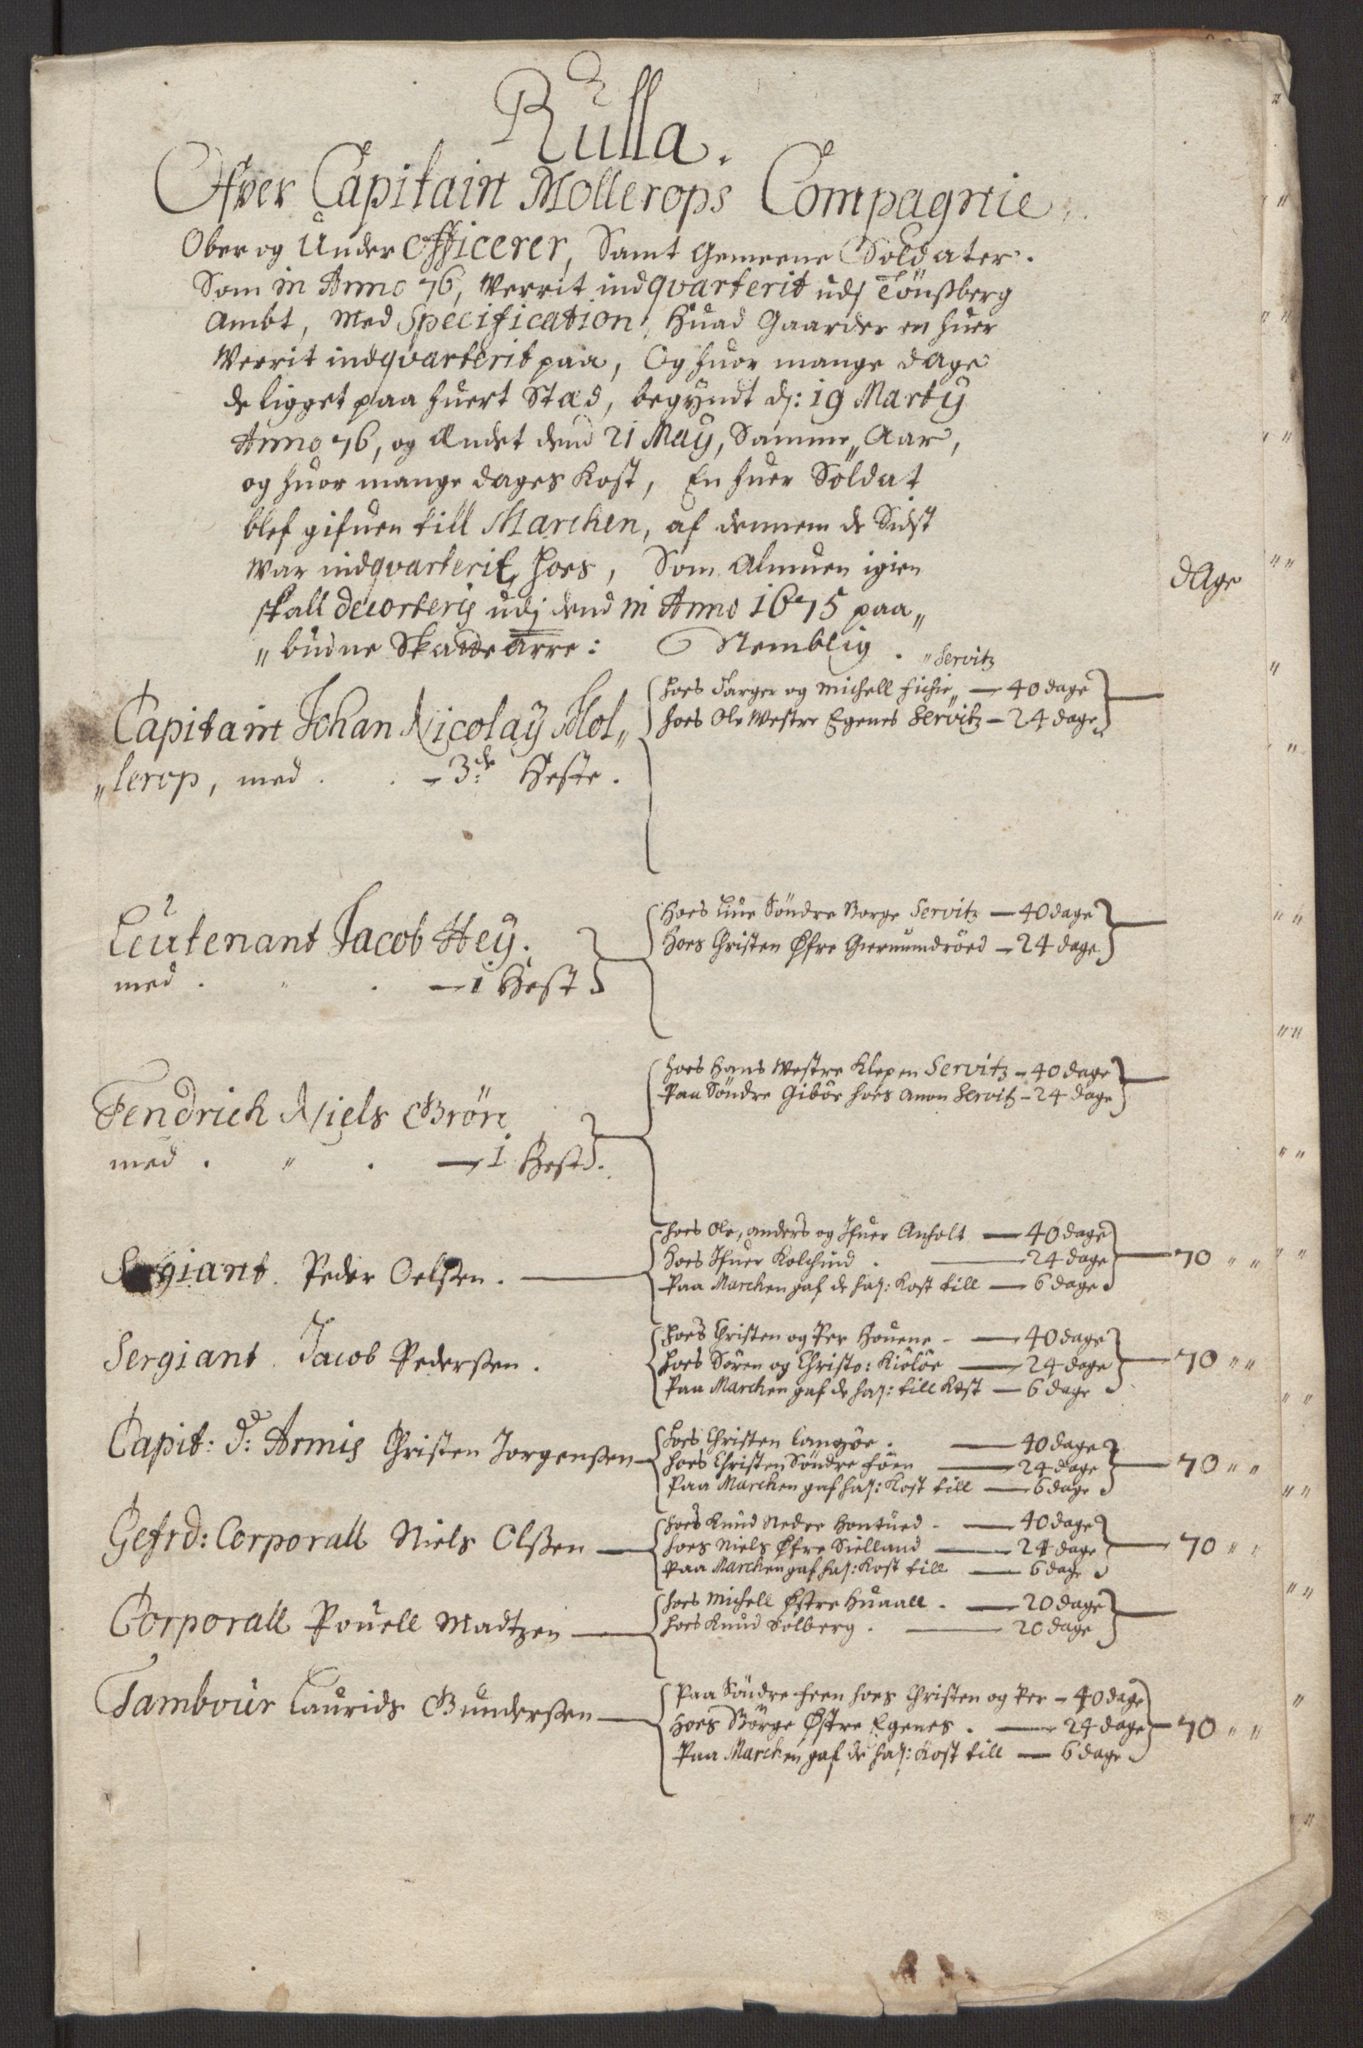 Rulla.
Ofver Capitain Mollerops Compagnie
Ober og Under Officerer, Samt Gemeene Soldater.
Som in Anno 76, Verrit indqvarterit udj Tönsßberg
Ambt, Med Specification, Huad Gaarder en huer
Verrit indqvarterit paa, Og huor mange dage
de ligget paa huert Stæd, begyndt d: 19 Marty
Anno 76, og Ændet dend 21 May, Samme Aar,
og huor mange dages Kost, En huer Soldat
blef gifuen till Marchen, af dennem de Sidst
war indqvarterit hoes, Som Almuen igien
skall decorteris udj dend in Anno 1675 paa„
„budne Skatte Ørre: Nemblig.
dage
„Servitz
Capitain Johan Nicolay Mol„
„lerop, med . . – 3de Heste.
hoes Farger og Michell — 40 dage
hoes Ole Westre Egenes Servitz – 24 dage
Leutenant Jacob Hey.
med . „ . — 1 Hest
Hoes Söndre Borge Servitz — 40 dage
Hoes Christen Øfre – 24 dage
Fendrich Niels Grön
med . „ . — 1 Hest.
hoes Hans Westre Klepen Servitz – 40 dage
Paa Söndre Giböe hoes Servitz – 24 dage
Sergiant. Peder Oelßen.
hoes Ole, anders og Ifuer Anholt — 40 dage
Hoes Ifuer — 24 dage — 70 „ „
Paa Marchen gaf de ha: Kost till — 6 dage
Sergiant. Jacob Pederßen.
hoes Christen og Per Houene — 40 dage
hoes Sören og Christo: Kiölöe — 24 dage — 70 „ „
Paa Marchen gaf de ha: till Kost — 6 dage
Capit: d: Armis Christen Jorgenßen
hoes Christen Langöe. — 40 dage
hoes Christen Söndre föen — 24 dage — 70 „ „
Paa Marchen gaf ha: Kost till — 6 dage
Gefrd: Corporall Niels Olßen
hoes Knud Nedre — 40 dage
hoes Niels Øfre Sielland — 24 dage — 70 „ „
Paa Marchen gaf ha: Kost till — 6 dage
Corporall Pouell Madtzen
hoes Michell Østre Huaall. — 20 dage
hoes Knud Solberg. — 20 dage
Tambour Laurids Gunderßen
Paa Söndre feen hoes Christen og Per – 40 dage
Hoes Börge Østre Egenes. — 24 dage — 70 „ „
Paa Marchen gaf de ha: Kost till — 6 dage